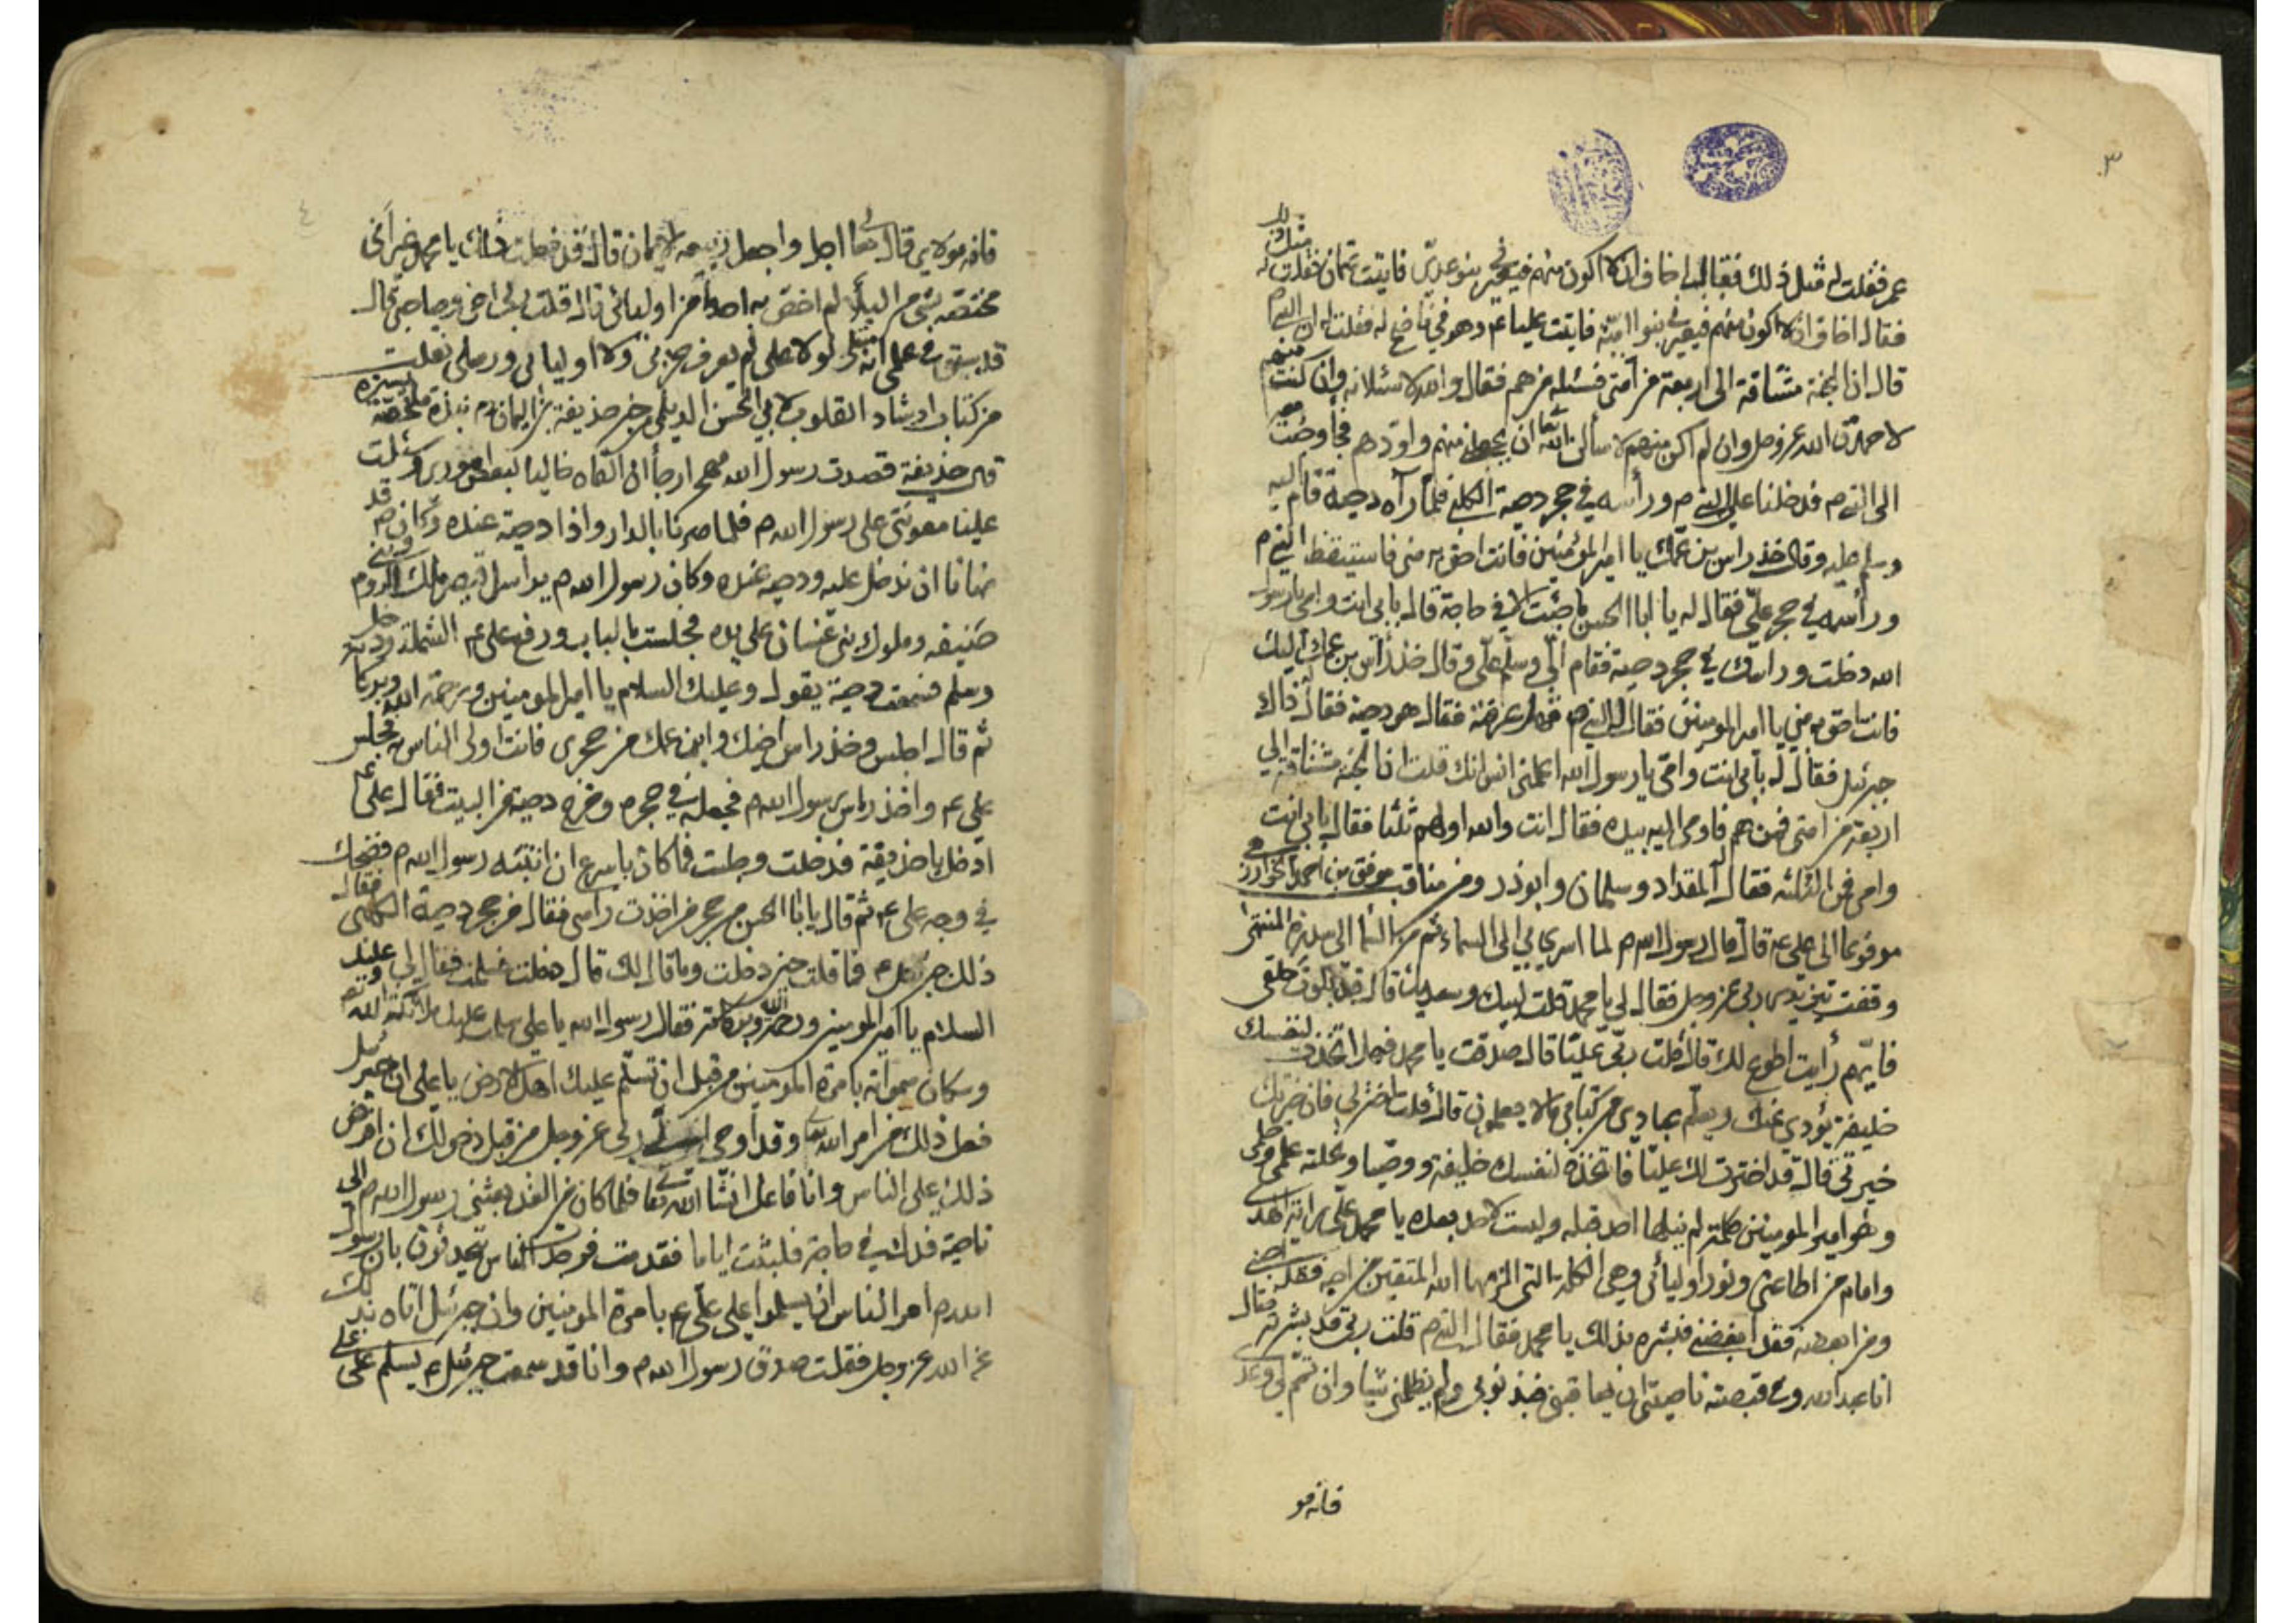 ٣
عمر فقلت له مثل ذلك فقال اخاف ان لا اكون منهم فيعيرني بنو عدي فاتيت عثمان فقلت له مثل ذلك
فقال اخاف ان لا اكون منهم فيعيرني بنو امية فاتيت عليا عم وهو في ناضح له فقلت له ان النبي م
قال ان الجنة مشتاقة الى اربعة من امتي فسئله من هم فقال والله لاسئلانه وان كنت منهم
لاحمدن الله عز وجل وان لم اكن منهم لاسألن الله تعا ان يجعلني منهم واودهم فجاء وجئت معه
الى النبي م فدخلنا على النبي م ورأسه في حجر دحية الكلبي فلما رآه دحية قام اليه
وسلم عليه وقال خذ راس بن عمك يا امير المؤمنين فانت احق به مني فاستيقظ النبي م
ورأسه في حجر علي فقال له يا ابا الحسن ما جئت الا في حاجة قال بابي انت وامي يا رسول
الله دخلت ورأسك في حجر دحية فقام الي وسلم علي وقال خذ رأس بن عمك اليك
فانت احق به مني يا امير المومنين فقال له النبي م فهل عرفته فقال هو دحية فقال ذاك
جبرئيل فقال له بابي انت وامي يا رسول الله اعلمني انس انك قلت ان الجنة مشتاقة الى
اربعة من امتي فمن هم فاومى اليه بيده فقال انت والله اولهم ثلثا فقال بابي انت
وامي فمن الثلثه فقال المقداد وسلمان وابوذر ومن مناقب موفق بن احمد الخوارزمي
مرفوعا الى علي عم قال قال رسول الله م لما اسري بي الى السماء ثم من السما الى سدرة المنتهى
وقفت بين يدي ربي عز وجل فقال لي يا محمد قلت لبيك وسعديك قال قد بلوت خلقي
فايهم رأيت اطوع لك قال قلت ربي عليا قال صدقت يا محمد فهل اتخذت لنفسك
خليفة يؤدي عنك ويعلم عبادي من كتابي ما لا يعلمون قال قلت اختر لي فان خيرتك
خيرتي قال قد اخترت لك عليا فاتخذه لنفسك خليفة ووصيا ونحلته علمي وحلمي
وهو امير المومنين كلمة لم ينلها احد قبله وليست لاحد بعده يا محمد علي راية الهدى
وامام من اطاعني ونور اوليائي وهي الكلمة التي الزمها الله المتقين من احبه فقد احبني
ومن ابغضه فقد ابغضني فبشره بذلك يا محمد فقال النبي م قلت ربي قد بشرته فقال
انا عبد الله وفي قبضته ان يعاقبني فبذنوبي ولم يظلمني شيا وان تمم لي وعدي
فانه مو
٤
فانه مولاي قال تعا اجل واجعل ربيعه الايمان قال قد فعلت ذلك يا محمد غير اني
مختصه بشئ من البلاء لم اختص به احدا من اوليائي قال قلت ربي اخي وصاحبي قال
قد سبق في علمي انه مبتلى لولا علي لم يعرف حزبي ولا اوليائي ورسلي نقلت
من كتاب ارشاد القلوب لابي الحسن الديلمي خبر حذيفة بن اليمان نبذة يسيرة
قال حذيفة قصدت رسول الله م رجأ ان القاه خاليا لبعض اموري وسئلت
عليا معونتي على رسول الله م فلما صرنا بالدار واذا دحية عنده وكان م قد
نهانا ان ندخل عليه ودحية عنده وكان رسول الله م يراسل قيصر ملك الروم وبني
حنيفه وملوك بني غسان على يده فجلست بالباب ورفع علي عم الشملة ودخل
وسلم فسمعت دحية يقول وعليك السلام يا امير المومنين ورحمة الله وبركاته
ثم قال اجلس وخذ راس اخيك وابن عمك من حجري فانت اولى الناس به فجلس
علي عم واخذ راس رسول الله م فجعله في حجره وخرج دحية من البيت فقال علي عم
ادخل يا حذيفة فدخلت وجلست فما كان باسرع ان انتبه رسول الله م فضحك
في وجه علي عم ثم قال يا ابا الحسن من حجر من اخذت راسي فقال من حجر دحية الكلبي فقال
ذلك جبرئيل عم فما قلت حين دخلت وما قال لك قال دخلت فسلمت فقال لي وعليك
السلام يا امير المومنين ورحمة الله وبركاته فقال رسول الله يا علي سلمت عليك ملائكة الله
وسكان سمواته بامرة المومنين من قبل ان تسلم عليك اهل الارض يا علي ان جبرئيل
فعل ذلك من امر الله تعا وقد اوحى الي ربي عز وجل من قبل دخولك ان افرض
ذلك على الناس وانا فاعل انشا الله تعا فلما كان من الغد بعثني رسول الله م الى
ناحية فدك في حاجة فلبثت اياما فقدمت فوجدت الناس يتحدثون بان رسول
الله م امر الناس ان يسلموا على علي عم بامرة المومنين وان جبرئيل اتاه بذلك
عن الله عز وجل فقلت صدق رسول الله م وانا قد سمعت جبرئيل عم يسلم على علي